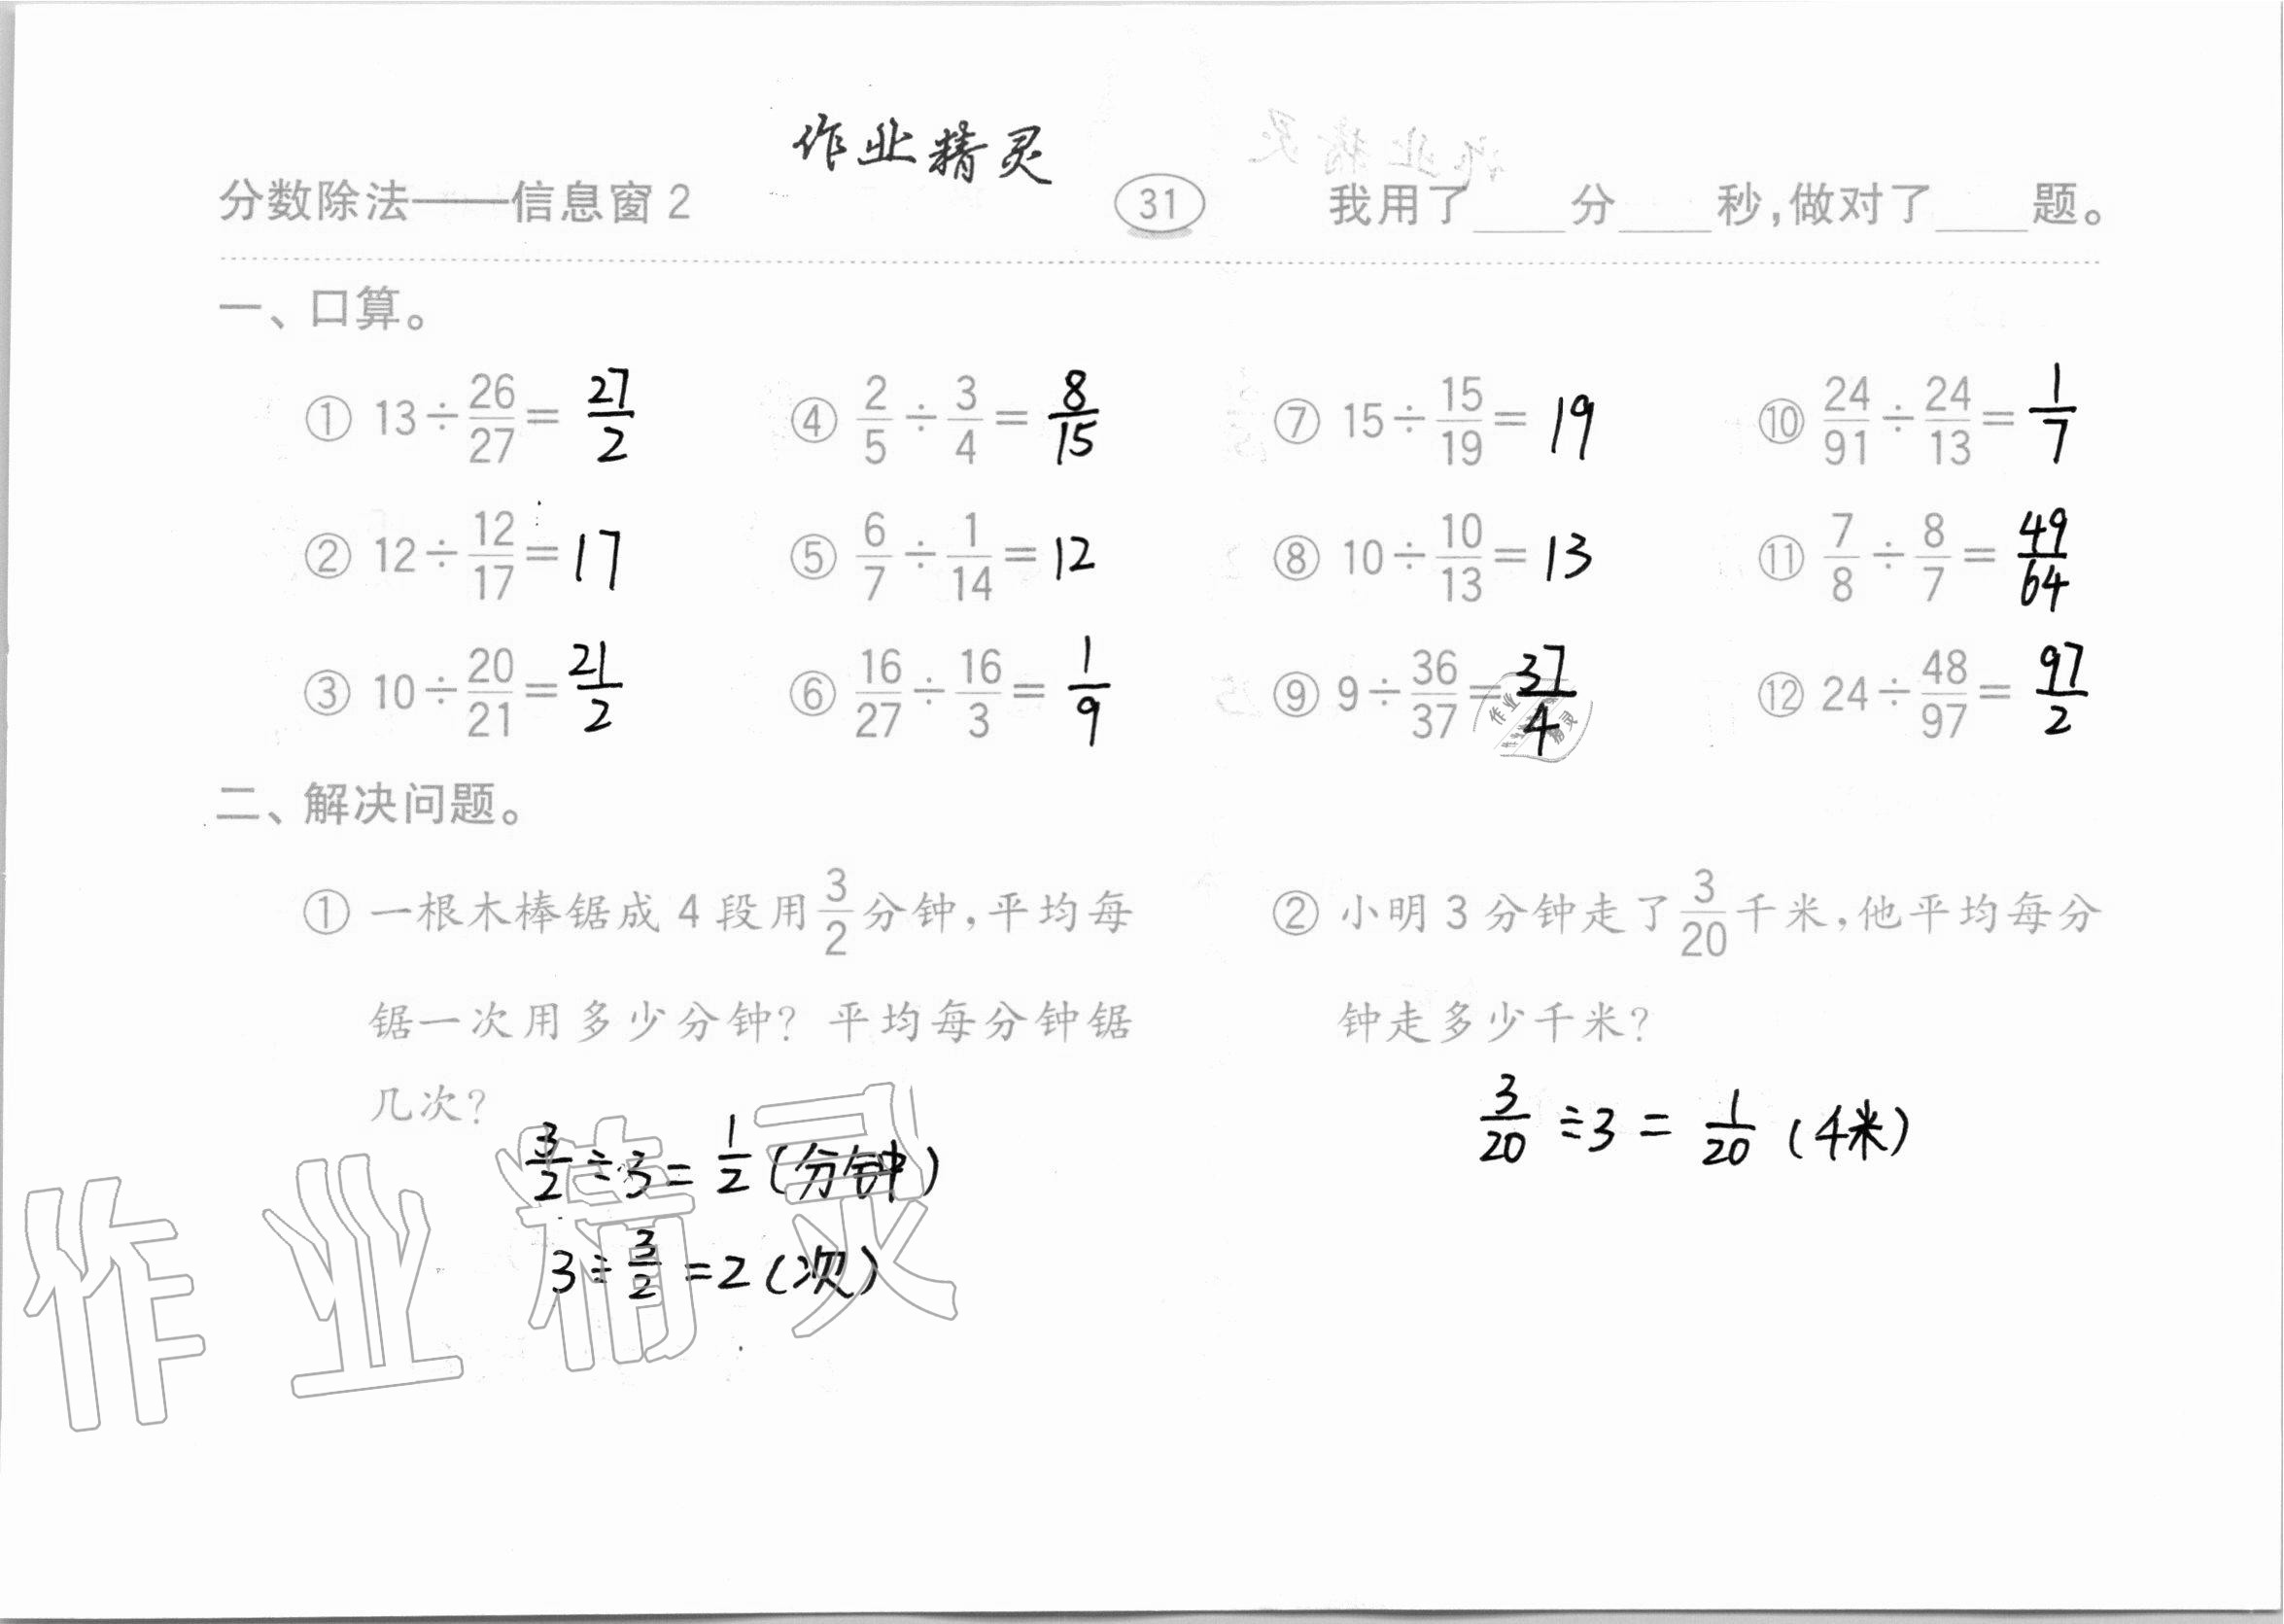 作业精灵
分数除法——信息窗2 31 我用了____分____秒,做对了____题。
一、口算。
① 13÷26/27=27/2 ④ 2/5÷3/4=8/15 ⑦ 15÷15/19=19 ⑩ 24/91÷24/13=1/7
② 12÷12/17=17 ⑤ 6/7÷1/14=12 ⑧ 10÷10/13=13 ⑪ 7/8÷8/7=49/64
③ 10÷20/21=21/2 ⑥ 16/27÷16/3=1/9 ⑨ 9÷36/37=37/4 ⑫ 24÷48/97=97/2
作业精灵
二、解决问题。
① 一根木棒锯成4段用3/2分钟,平均每
锯一次用多少分钟？平均每分钟锯
几次？
3/2÷3=1/2(分钟)
3÷3/2=2(次)
② 小明3分钟走了3/20千米,他平均每分
钟走多少千米？
3/20÷3=1/20(4米)
作业精灵